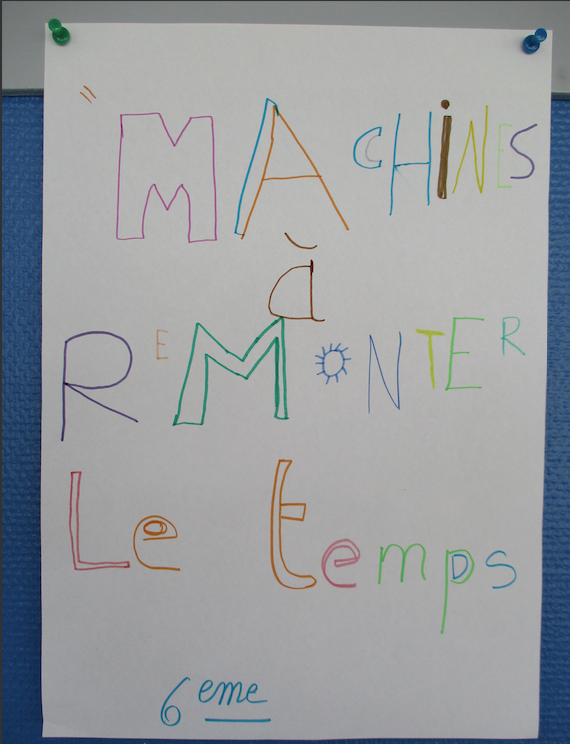 " MACHiNES
à
REMONTER
Le temps
6 eme